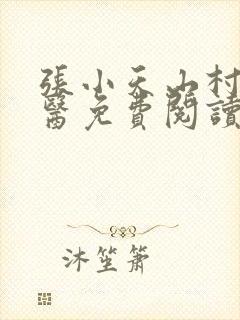 張小天山村
醫免費閱讀
沐笙簫